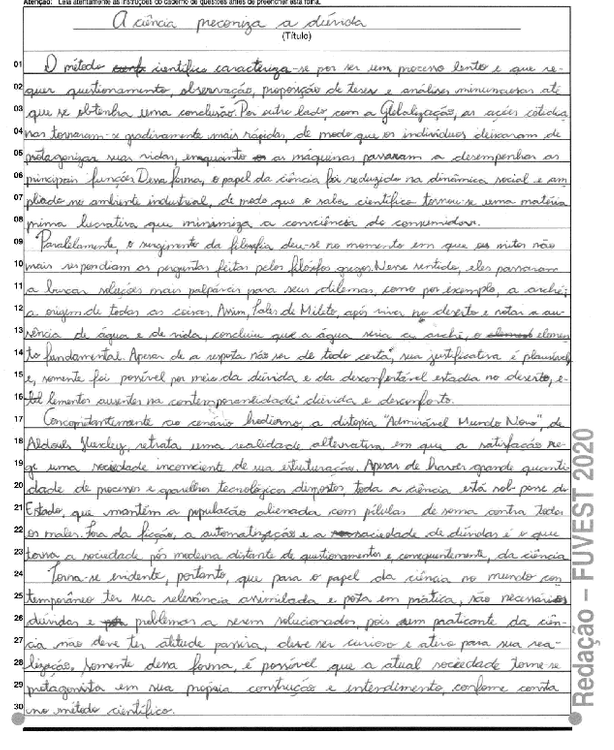 Atenção: Leia atentamente as instruções do caderno de questões antes de preencher esta folha.
A ciência preconiza a dúvida
(Título)
01 O método científico caracteriza-se por ser um processo lento e que re-
02 quer questionamento, observação, proposição de teses e análises minunciosas até
03 que se obtenha uma conclusão. Por outro lado, com a Globalização, as ações cotidia
04 nas tornaram-se gradivamente mais rápidas, de modo que os indivíduos deixaram de
05 protagonizar suas vidas, enquanto as máquinas passaram a desempenhar as
06 principais funções. Dessa forma, o papel da ciência foi reduzido na dinâmica social e am
07 pliado no ambiente industrial, de modo que o saber científico tornou-se uma matéria
08 prima lucrativa que minimiza a consciência do consumidor.
09 Paralelamente, o surgimento da filosofia deu-se no momento em que os mitos não
10 mais respondiam as perguntas feitas pelos filósofos gregos. Nesse sentido, eles passaram
11 a buscar soluções mais palpáveis para seus dilemas, como por exemplo, a arché;
12 a origem de todas as coisas. Assim, Tales de Mileto, após viver no deserto e notar a au
13 sência de água e de vida, concluiu que a água seria a arché, o elemen
14 to fundamental. Apesar de a resposta não ser de todo certa, sua justificativa é plausível
15 e, somente foi possível por meio da dúvida e da desconfortável estadia no deserto, e-
16 lementos ausentes na contemporaneidade: dúvida e desconforto.
17 Concomitantemente ao cenário hodierno, a distopia "Admirável Mundo Novo", de
18 Aldous Huxley, retrata uma realidade alternativa em que a satisfação re-
19 ge uma sociedade inconsciente de sua estruturação. Apesar de haver grande quanti
20 dade de processos e aparelhos tecnológicos dispostos, toda a ciência está sob posse do
21 Estado, que mantém a população alienada com pílulas de soma contra todos
22 os males. Fora da ficção, a automatização e a saciedade de dúvidas é o que
23 torna a sociedade pós moderna distante de questionamentos e, consequentemente, da ciência
24 Torna-se evidente, portanto, que para o papel da ciência no mundo con
25 temporâneo ter sua relevância assimilada e posta em prática, são necessários
26 dúvidas e problemas a serem solucionados, pois um praticante da ciên-
27 cia não deve ter atitude passiva, deve ser curioso e ativo para sua rea-
28 lização. Somente dessa forma, é possível que a atual sociedade torne-se
29 protagonista em sua própria construção e entendimento, conforme consta
30 no método científico.
Redação – FUVEST 2020